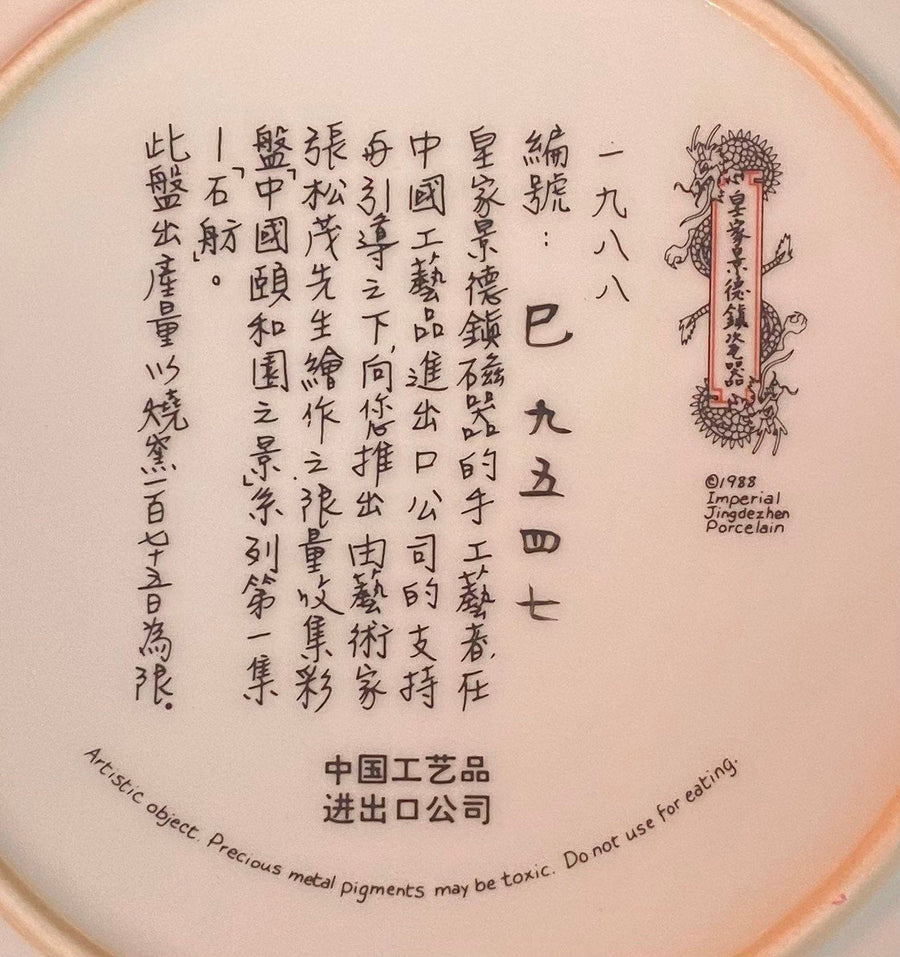 皇家景德鎮瓷器
©1988
Imperial
Jingdezhen
Porcelain
一九八八
編號：巳九五四七
皇家景德鎮磁器的手工藝者,在
中國工藝品進出口公司的支持
与引導之下,向您推出由藝術家
張松茂先生繪作之限量收集彩
盤「中國頤和園之景」系列第一集
—「石舫」。
此盤出產量以燒窯一百七十五日為限.
中国工艺品
进出口公司
Artistic object. Precious metal pigments may be toxic. Do not use for eating.